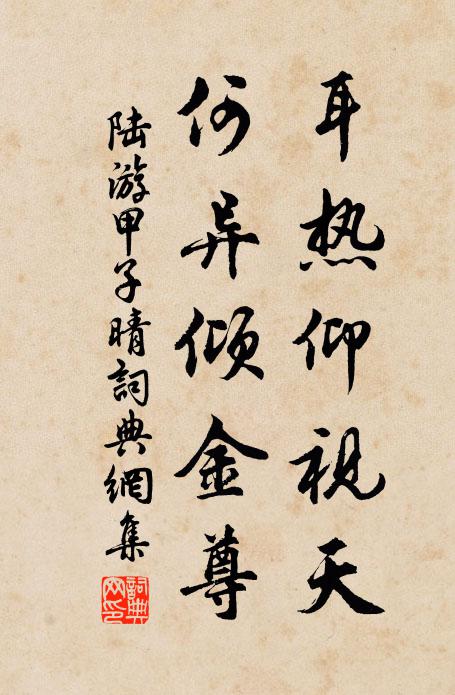 耳热仰视天
何异倾金尊
陆游甲子晴詞典網集
詞典网印